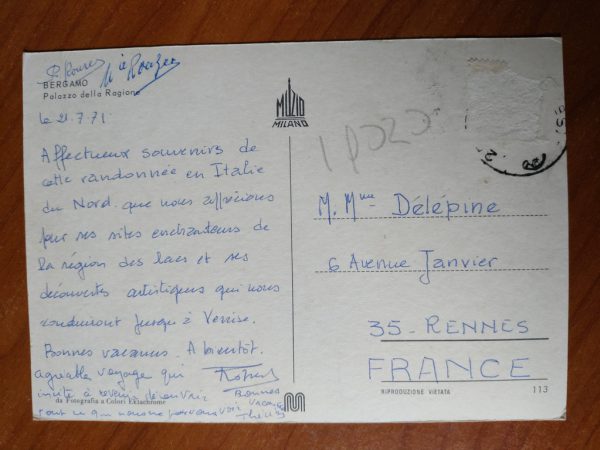 BERGAMO
Palazzo della Ragione
le 21.7.71.
Affectueux souvenirs de
cette randonnée en Italie
du Nord que nous apprécions
pour ses sites enchanteurs de
la région des lacs et ses
découvertes artistiques qui nous
conduiront jusqu'à Venise.
Bonnes vacances. A bientôt.
agréable voyage qui
invite à revenir découvrir
tout ce que nous ne pouvons voir
Bonnes
vacances
da Fotografia a Colori Ektachrome
MUZIO
MILANO
M. Mme Délépine
6 Avenue Janvier
35 - RENNES
FRANCE
RIPRODUZIONE VIETATA
113